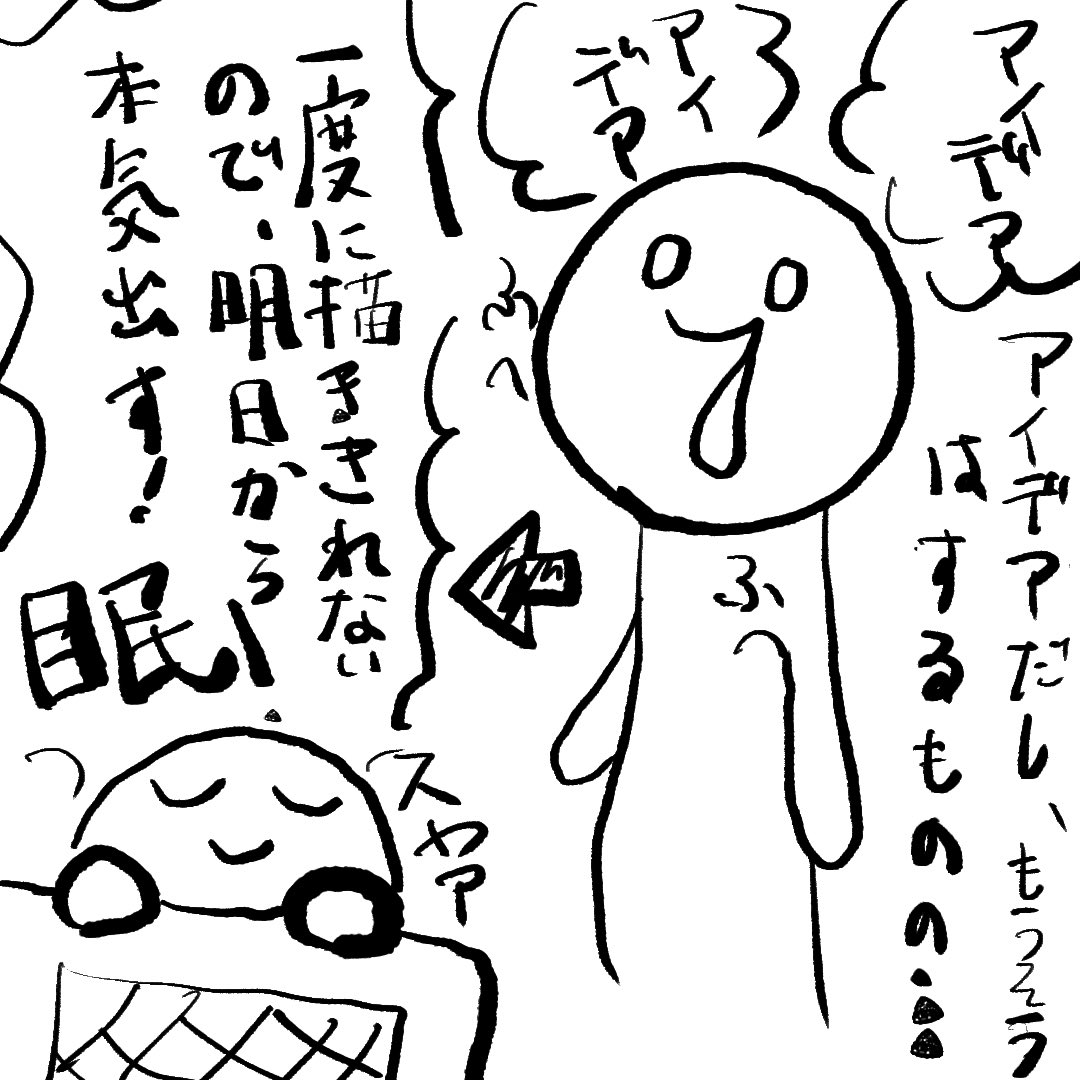 アイデア
アイデアだし、もうそう
はするものの…
アイデア
ふへ
ふへ
一度に描ききれない
ので、明日から
本気出す!
眠い
スヤァ